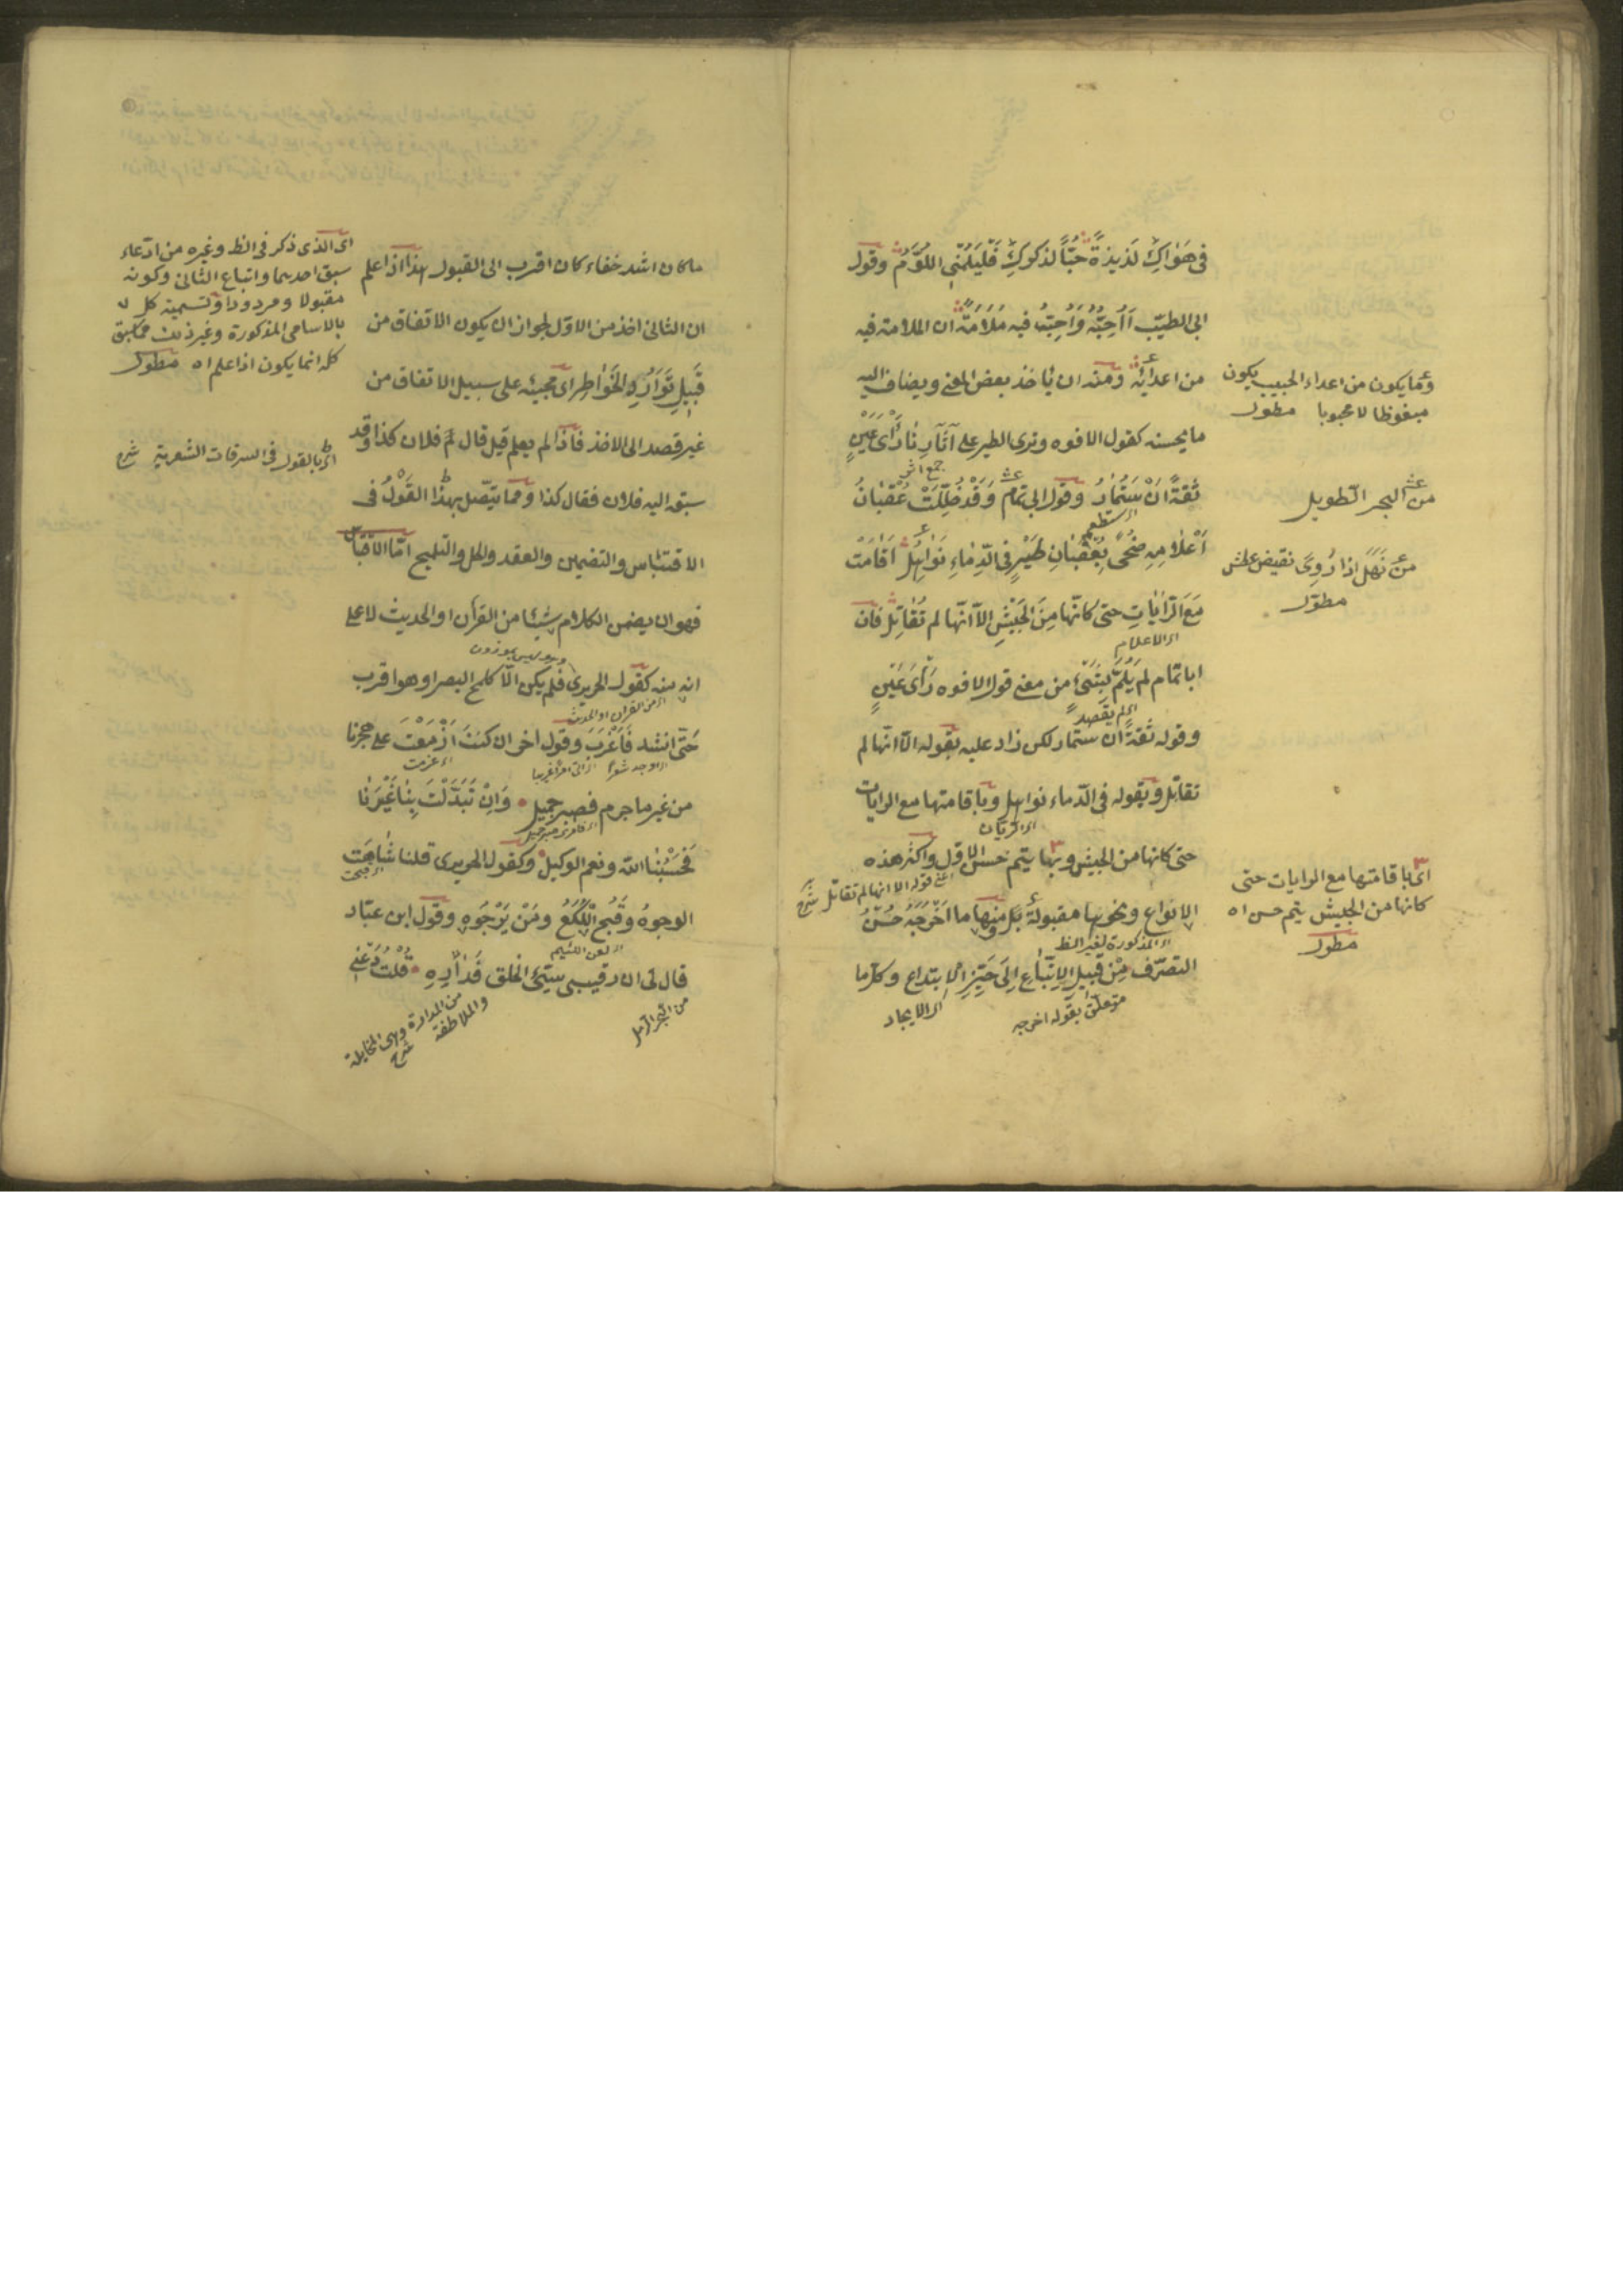 في هَوٰاكِ لَذيذةً حُبّاً لذكركِ فَلْيَلُمْنِي اللُوَّمُ وقول
ابي الطيّب أَأُحِبُّهُ وَأُحِبُّ فيه مَلَامَةً ان الملامة فيه
من اعدائِه ومنه ان ياخذ بعض المعنى ويضاف اليه
ما يحسنه كقول الافوه وترى الطير على آثارِنا رَأْىَ عَيْنٍ
جمع اثر
ثِقَةً اَنْ سَتُمَارُ وقول ابي تمام وَقَدْ ظُلِّلَتْ عُقْبٰانُ
اى ستطعم
اَعْلَامِهِ ضُحًى بِعُقْبٰانِ طَيْرٍ فى الدِّمٰاءِ نَوٰاهِلُ اَقٰامَتْ
مَعَ الرّٰايٰاتِ حتى كَانّها مِنَ الجَيْشِ الّا اَنّها لم تُقٰاتِلْ فان
اى الاعلام
ابا تمام لم يُلِمَّ بِشَىْءٍ من معنى قول الافوه رَأْىَ عَيْنٍ
اى لم يقصد
وقوله ثقةً ان ستمار لكن زاد عليه بقوله الا انها لم
تقاتل وبقوله فى الدماء نواهل وباقامتها مع الرايات
حتى كانها من الجيش وبها يتم حسن الاول واكثر هذه
اعنى قوله الا انها لم تقاتل شرح
الانواع ونحوها مقبولة بل منها ما اَخْرَجَهُ حُسْنُ
اى المذكورة لغير الظ
التصرّف مِنْ قَبيلِ الاِتّبٰاعِ اِلَى حَيِّزِ الابتداع وكلّما
متعلق بقوله اخرجه
اى الايجاد
وما يكون من اعداء الحبيب يكون
مبغوظا لا محبوبا مطول
من البحر الطويل
من نَهَلَ اذا رُوِىَ نقيض عطش
مطوّل
اى باقامتها مع الرايات حتى
كانها من الجيش يتم حسن اه
مطول
ما كان اشد خفاء كان اقرب الى القبول هذا اذا علم
ان الثانى اخذ من الاوّل لجواز ان يكون الاتفاق من
قَبيلِ تَوَارُدِ الخَوٰاطِر اى مجيئه على سبيل الاتفاق من
غير قصد الى الاخذ فاذا لم يعلم قيل قال فلان كذا وقد
سبقه اليه فلان فقال كذا ومما يتّصل بهذا القَوْلُ فى
الاقتباس والتضمين والعقد والحل والتلميح امّا الاقتباس
فهو ان يضمن الكلام شيئا من القرآن او الحديث لا على
انه منه كقول الحريرى فلم يكن الّا كلمح البصر او هو اقرب
اى من القرآن او الحديث
حَتّى انشد فَاَغْرَبَ وقول اخر ان كنتَ اَزْمَعْتَ على هجرنا
اى عزمت
من غير ما جرم فصبر جميل وَاِنْ تَبَدَّلْتَ بِنٰا غَيْرَنٰا
فَحَسْبُنٰا الله ونعم الوكيل وكقول الحريرى قلنا شٰاهَتِ
اى قبحت
الوجوهُ وقُبِحَ اللُّكَعُ ومَنْ يَرْجُوهِ وقول ابن عبّاد
اى لعن اللئيم
قال لى ان رقيبى سيّئ الخلق فَدٰارِهِ قُلْتُ دَعْنى
من البحر الرمل
من المدارة وهى
والملاطفة
شرح
اى الذى ذكر فى الظ وغيره من ادّعاء
سبق احديهما واتباع الثانى وكونه
مقبولا ومردودا وتسمية كل
بالاسامى المذكورة وغير ذلك مما سبق
كله انما يكون اذا علم اه مطول
اى بالقول فى السرقات الشعرية شرح